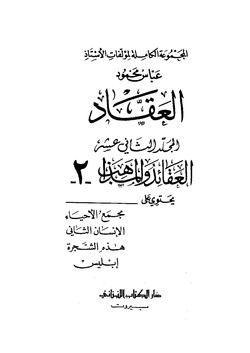 المجموعة الكاملة لمؤلفات الأستاذ
عباس محمود
العقاد
المجلد الثاني عشر
العقائد والمذاهب -٢-
يحتوي على
مجمع الأحياء
الإنسان الثاني
هذه الشجرة
إبليس
دار الكتاب اللبناني
بيروت